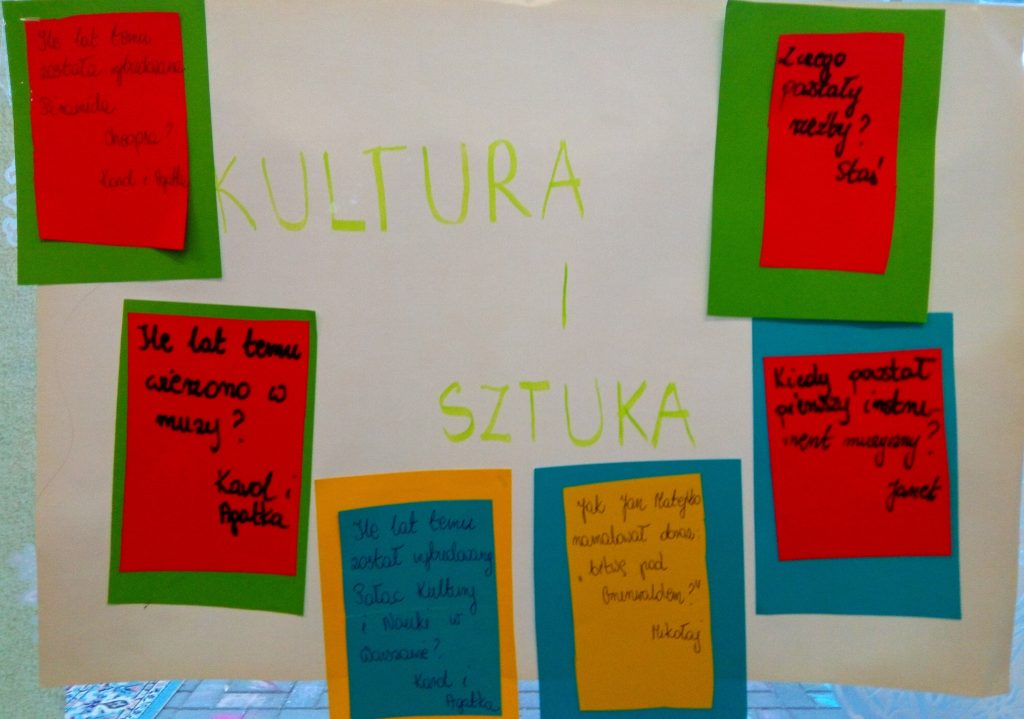 Ile lat temu
została wybudowana
Chopina?
Karol i Agatka
KULTURA
I
SZTUKA
Z czego
postały
rzeźby?
Staś
Ile lat temu
wierzono w
muzy?
Karol i
Agatka
Kiedy postał
pierwszy instru-
ment muzyczny?
Janek
Ile lat temu
został wybudowany
Pałac Kultury
i Nauki w
Warszawie?
Karol i
Agatka
Jak Jan Matejko
namalował obraz
"bitwę pod
Grunwaldem?"
Mikołaj